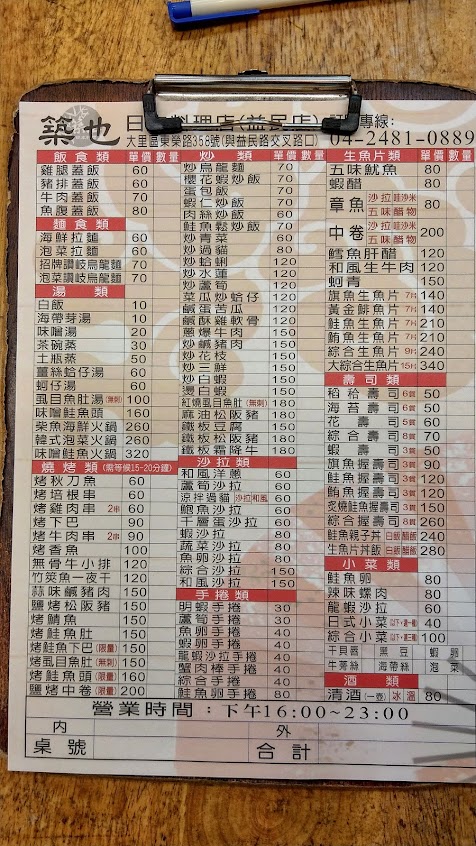 築也 日 料理店(益民店) 專線:
大里區東榮路358號(與益民路交叉路口) 04-2481-0889
飯食類 單價 數量
雞腿蓋飯 60
豬排蓋飯 60
牛肉蓋飯 70
魚腹蓋飯 80
麵食類
海鮮拉麵 60
泡菜拉麵 60
招牌讚岐烏龍麵 70
泡菜讚岐烏龍麵 70
湯類
白飯 10
海帶芽湯 10
味噌湯 20
茶碗蒸 30
土瓶蒸 50
薑絲蛤仔湯 60
蚵仔湯 60
虱目魚肚湯(無刺) 100
味噌鮭魚頭 160
柴魚海鮮火鍋 260
韓式泡菜火鍋 260
味噌鮭魚火鍋 320
燒烤類(需等候15-20分鐘)
烤秋刀魚 60
烤培根串 60
烤雞肉串 2串 60
烤下巴 90
烤牛肉串 2串 90
烤香魚 100
無骨牛小排 120
竹筴魚一夜干 120
蒜味鹹豬肉 150
鹽烤松阪豬 150
烤鯖魚 150
烤鮭魚肚 150
烤鮭魚下巴(限量) 150
烤虱目魚肚(無刺) 150
烤鮭魚頭(限量) 160
鹽烤中卷(限量) 200
炒類 單價 數量
炒烏龍麵 70
櫻花蝦炒飯 70
蛋包飯 70
蝦仁炒飯 70
肉絲炒飯 60
鮭魚鬆炒飯 70
炒青菜 60
炒過貓 80
炒蛤蜊 120
炒水蓮 120
炒蘆筍 120
菜瓜炒蛤仔 120
鹹蛋苦瓜 120
鹹酥雞軟骨 120
蔥爆牛肉 150
炒鹹豬肉 150
炒花枝 150
炒三鮮 150
炒白蝦 150
燙白蝦 150
紅燒虱目魚肚(無刺) 180
麻油松阪豬 180
鐵板豆腐 150
鐵板松阪豬 180
鐵板霜降牛 180
沙拉類
和風洋蔥 60
蘆筍沙拉 60
涼拌過貓 沙拉 和風 60
鮑魚沙拉 60
千層蛋沙拉 60
蝦沙拉 80
蔬菜沙拉 80
魚卵沙拉 80
綜合沙拉 150
和風沙拉 150
手捲類
明蝦手捲 30
蘆筍手捲 30
魚卵手捲 40
蝦卵手捲 40
龍蝦沙拉手捲 40
蟹肉棒手捲 40
綜合手捲 40
鮭魚卵手捲 80
生魚片類 單價 數量
五味魷魚 80
蝦醋 80
章魚 沙拉 哇沙米 五味 醋物 80
中卷 沙拉 哇沙米 五味 醋物 200
鱈魚肝醋 120
和風生牛肉 120
蚵青 70
旗魚生魚片 7片 140
黃金鯡魚片 7片 140
鮭魚生魚片 7片 210
鮪魚生魚片 7片 210
綜合生魚片 9片 240
大綜合生魚片 15片 340
壽司類
稻荷壽司 6貫 50
海苔壽司 6貫 50
花壽司 6貫 50
綜合壽司 8貫 70
蝦壽司 3貫 50
旗魚握壽司 3貫 90
鮭魚握壽司 3貫 120
鮪魚握壽司 3貫 120
炙燒鮭魚握壽司 3貫 150
綜合握壽司 260
鮭魚親子丼 白飯 醋飯 280
生魚片丼飯 白飯 醋飯 280
小菜類
鮭魚卵 80
辣味螺肉 80
龍蝦沙拉 60
日式小菜 40
綜合小菜 100
干貝唇 黑豆 蝦卵
牛蒡絲 海帶絲 泡菜
酒類
清酒(一壺) 冰 溫 80
營業時間:下午16:00~23:00
內 外
桌號 合計